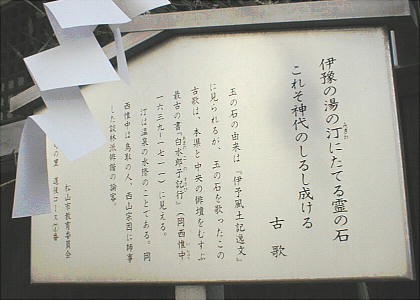 伊豫の湯の汀にたてる霊の石
みぎわ
これぞ神代のしるし成ける
古歌
玉の石の由来は『伊予風土記逸文』
に見られるが、玉の石を歌ったこの
古歌は、本県と中央の俳壇をむすぶ
最古の書『白水郎子記行』(岡西惟中
一六三九―一七一一)に見える。
汀は温泉の水際のことである。岡
西惟中は鳥取の人、西山宗因に師事
した談林派俳諧の論客。
松山市教育委員会
の里 道後コース
番